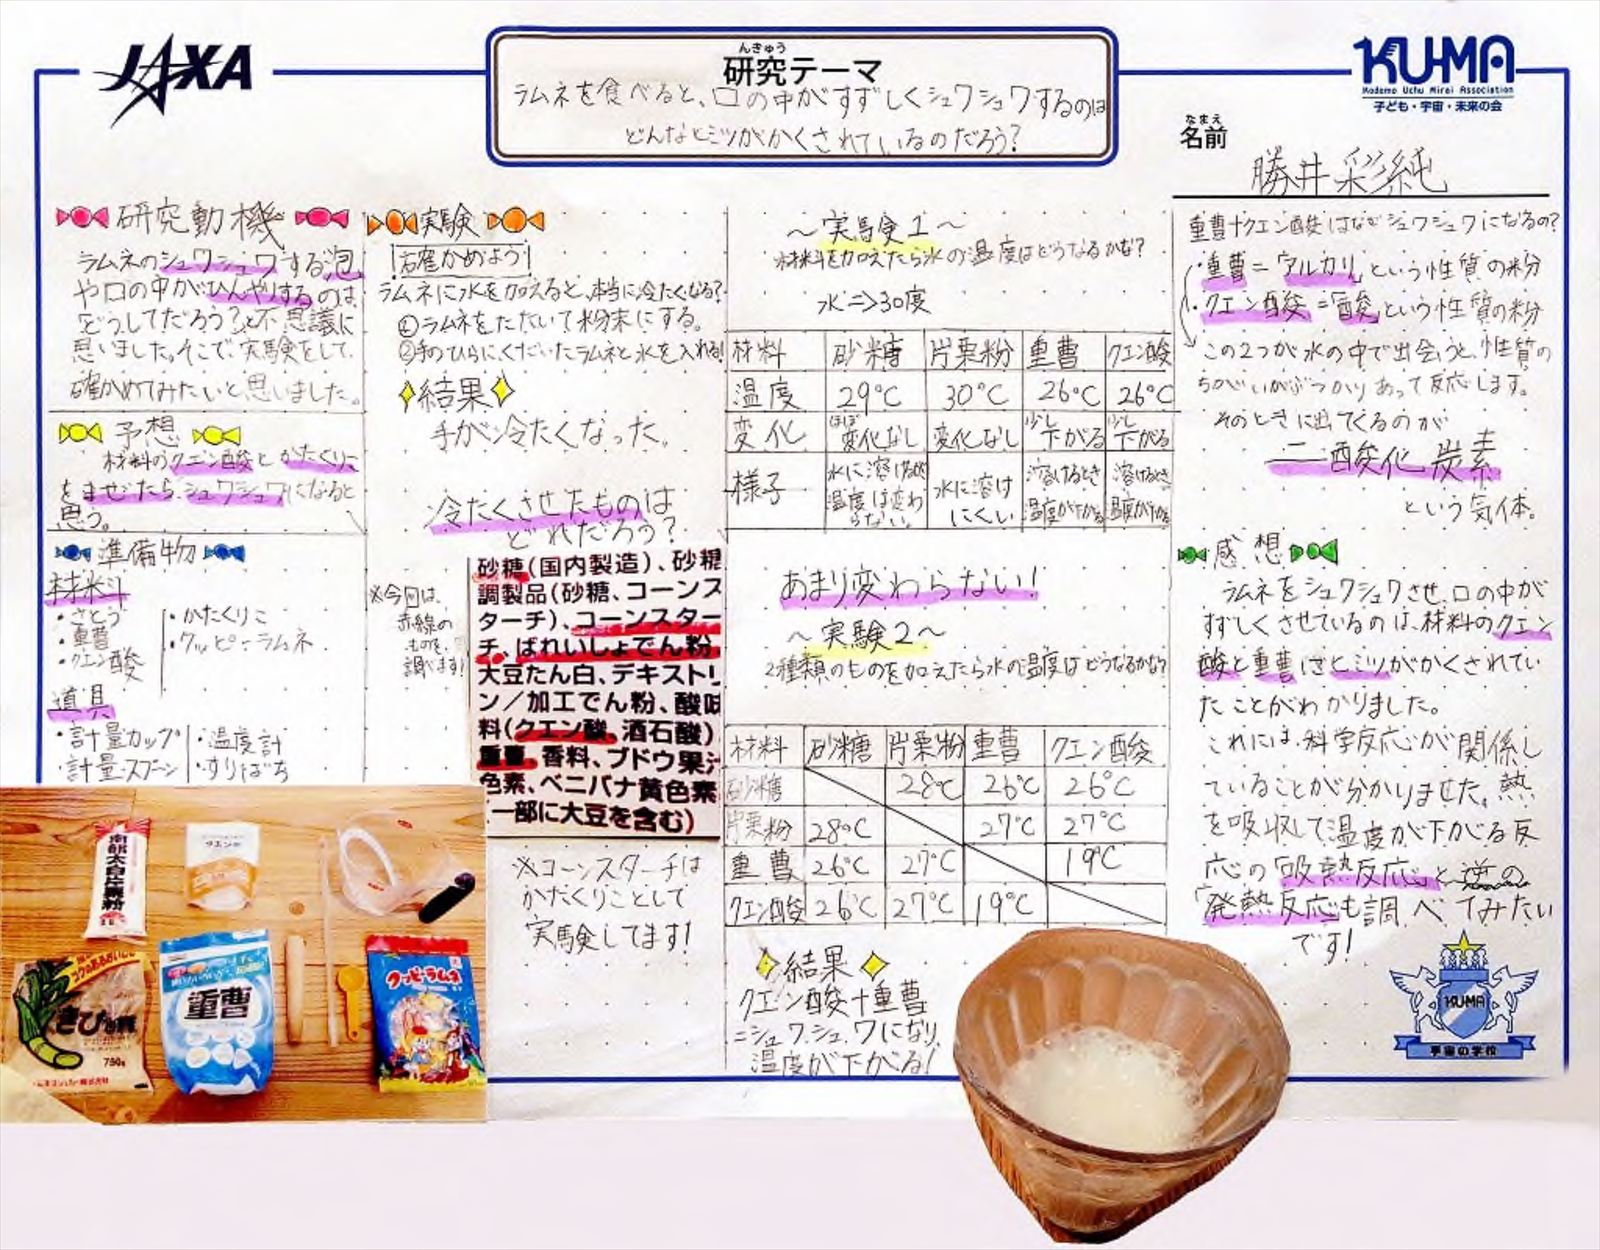 JAXA
んきゅう
研究テーマ
ラムネを食べると、口の中がすずしくシュワシュワするのは
どんなヒミツがかくされているのだろう?
KU-MA
Kodomo Uchu Mirai Association
子ども・宇宙・未来の会
なまえ
名前
勝井彩純
研究動機
ラムネのシュワシュワする泡
や口の中がひんやりするのは、
どうしてだろう?と不思議に
思いました。そこで、実験をして、
確かめてみたいと思いました。
予想
材料のクエン酸とかたくりこ
をまぜたら、シュワシュワになると
思う。
準備物
材料
・さとう
・重曹
・クエン酸
・かたくりこ
・クッピーラムネ
道具
・計量カップ
・計量スプーン
・温度計
・すりばち
実験
確かめよう
ラムネに水を加えると、本当に冷たくなる?
①ラムネをたたいて粉末にする。
②手のひらにくだいたラムネと水を入れる!
結果
手が冷たくなった。
冷たくさせたものは
どれだろう?
※今回は、
赤線の
ものを、
調べます!
砂糖(国内製造)、砂糖
調製品(砂糖、コーンス
ターチ)、コーンスター
チ、ばれいしょでん粉、
大豆たん白、デキストリ
ン/加工でん粉、酸味
料(クエン酸、酒石酸)
重曹、香料、ブドウ果汁
色素、ベニバナ黄色素
(一部に大豆を含む)
※コーンスターチは
かたくりことして
実験してます!
~実験1~
材料を加えたら水の温度はどうなるかな?
水⇒30度
材料 砂糖 片栗粉 重曹 クエン酸
温度 29℃ 30℃ 26℃ 26℃
変化 ほぼ変化なし 変化なし 少し下がる 少し下がる
様子 水に溶けるが温度は変わらない。 水に溶けにくい 溶けるとき温度が下がる 溶けるとき、温度が下がる
あまり変わらない!
~実験2~
2種類のものを加えたら水の温度はどうなるかな?
材料 砂糖 片栗粉 重曹 クエン酸
砂糖 28℃ 26℃ 26℃
片栗粉 28℃ 27℃ 27℃
重曹 26℃ 27℃ 19℃
クエン酸 26℃ 27℃ 19℃
結果
クエン酸+重曹
=シュワシュワになり、
温度が下がる!
重曹+クエン酸はなぜシュワシュワになるの?
・重曹=「アルカリ」という性質の粉
・クエン酸=「酸」という性質の粉
この2つが水の中で出会うと、性質の
ちがいがぶつかりあって反応します。
そのときに出てくるのが
二酸化炭素
という気体。
感想
ラムネをシュワシュワさせ、口の中が
すずしくさせているのは、材料のクエン
酸と重曹にヒミツがかくされてい
たことがわかりました。
これには、科学反応が関係し
ていることが分かりました。熱
を吸収して温度が下がる反
応の「吸熱反応」と逆の
「発熱反応」も調べてみたい
です!
南部太白片栗粉
クエン酸
重曹
きび砂糖
750g
クッピーラムネ
KUMA
宇宙の学校